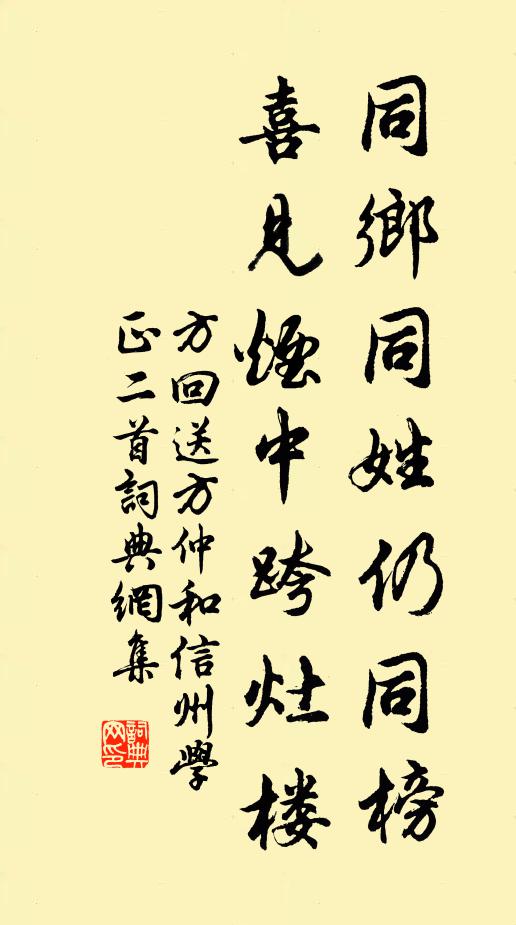 同鄉同姓仍同榜
喜見煙中跨灶楼
方回送方仲和信州學
正二首詞典網集
詞典網印